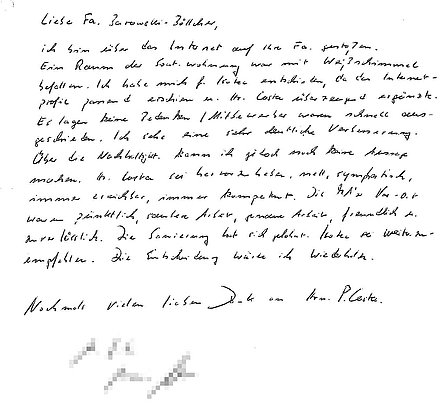 Liebe Fa. Barowski-Böttcher,
ich bin über das Internet auf Ihre Fa. gestoßen.
Ein Raum der Sout.wohnung war mit Weißschimmel
befallen. Ich habe mich f. Isotec entschieden, da das Internet-
profil passend erschien u. Hr. Costa überzeugend ergänzte.
Es lagen keine Bedenken / Mitbewerber waren schnell aus-
geschieden. Ich sehe eine sehr deutliche Verbesserung.
Über die Nachhaltigkeit kann ich jedoch noch keine Aussage
machen. Hr. Costa sei hervorzuheben, nett, sympathisch,
immer erreichbar, immer kompetent. Die MA'er Vor-Ort
waren pünktlich, saubere Arbeit, freundlich u.
zuverlässig. Die Sanierung hat sich gelohnt. Isotec sei weiterzu-
empfehlen. Die Entscheidung würde ich wiederholen.
Nochmals vielen lieben Dank an Hrn. P. Costa.